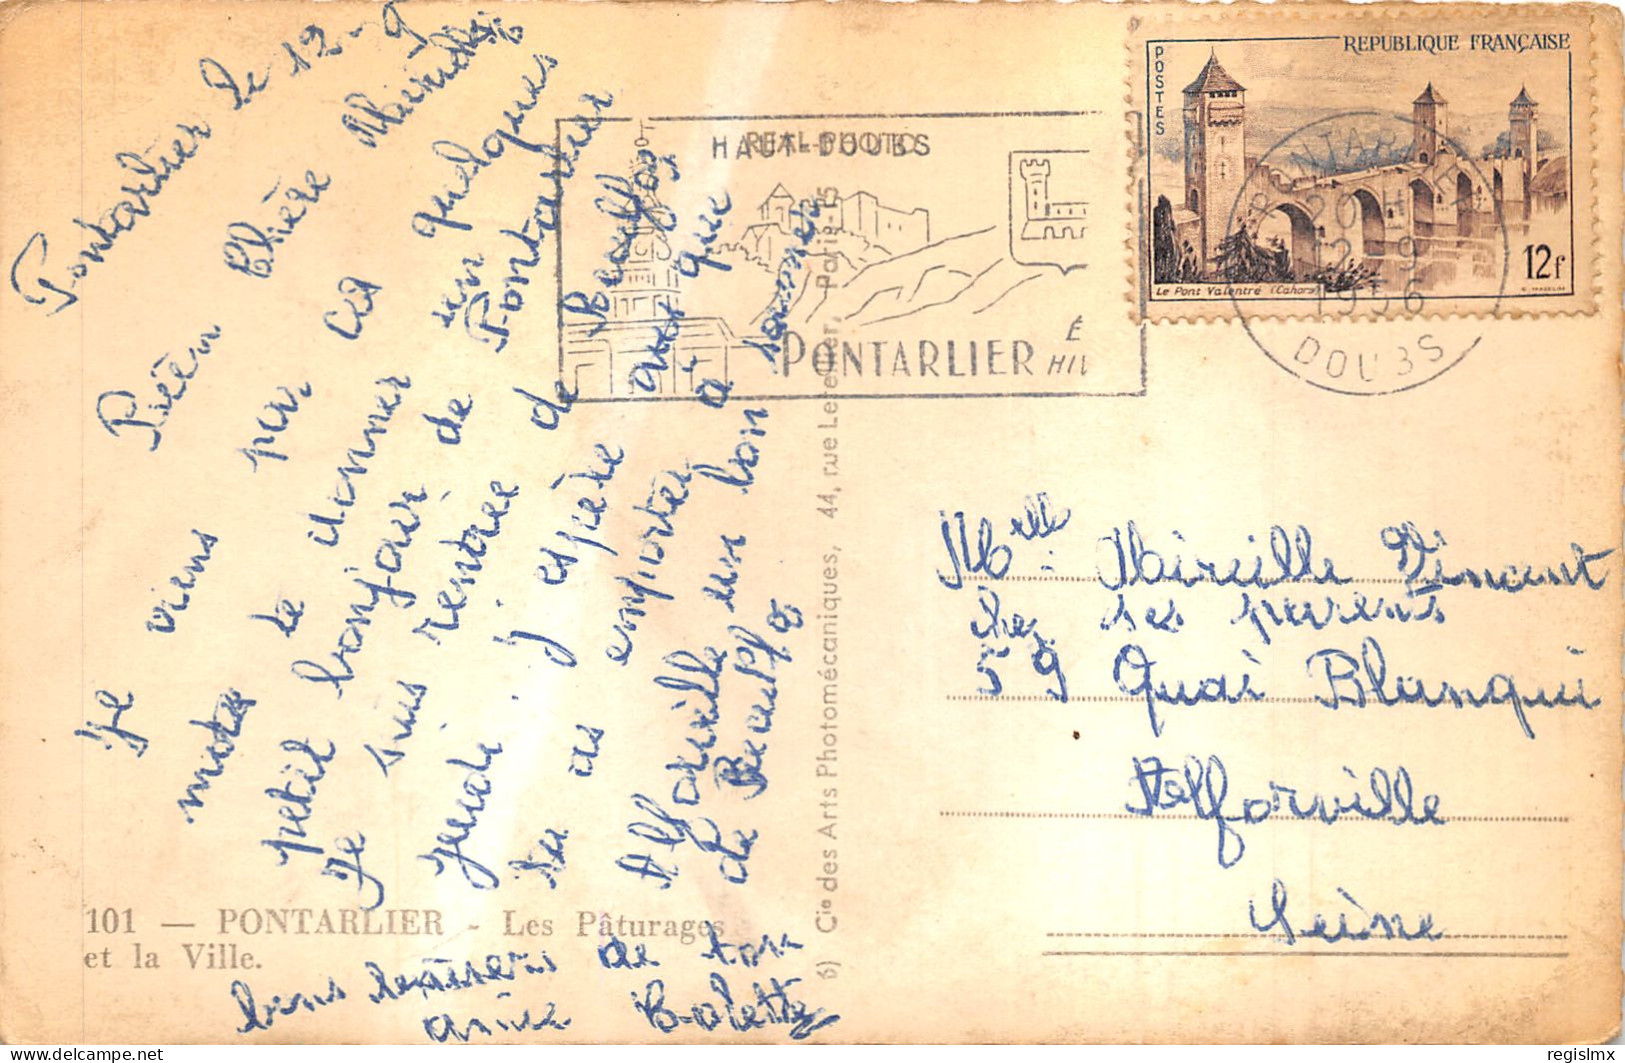 Pontarlier le 12-9
Bien Chère Mireille
Je viens par ces quelques
mots te donner un
petit bonjour de Pontarlier
Je suis rentrée de Beauffoz
jeudi. j'espère aussi que
tu as emporter à
Alforville un bon
de Beauffoz
bons baisers de ton
amie Colette
101 — PONTARLIER - Les Pâturages
et la Ville.
6) Cie des Arts Photomécaniques, 44, rue Letellier, Paris-15
REAL-PHOTO
HAUT-DOUBS
PONTARLIER
É
HIV
REPUBLIQUE FRANÇAISE
POSTES
12f
Le Pont Valentré (Cahors)
PONTARLIER
20 H
12-9
1956
DOUBS
Melle Mireille Vincent
chez ses parents
59 Quai Blanqui
Alforville
Seine
delcampe.net
regislmx